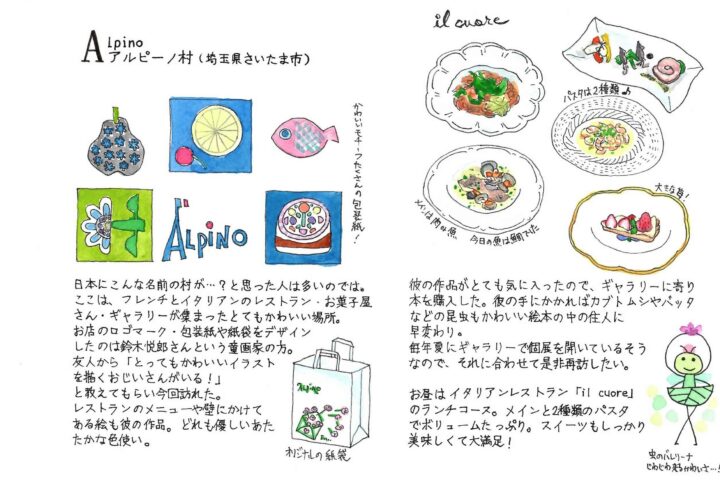 Alpino
アルピーノ村（埼玉県さいたま市）
かわいいモチーフたくさんの包装紙！
Alpino
日本にこんな名前の村が…？と思った人は多いのでは。
ここは、フレンチとイタリアンのレストラン・お菓子屋
さん・ギャラリーが集まったとてもかわいい場所。
お店のロゴマーク・包装紙や紙袋をデザイン
したのは鈴木悦郎さんという童画家の方。
友人から「とってもかわいいイラスト
を描くおじいさんがいる！」
と教えてもらい今回訪れた。
レストランのメニューや壁にかけて
ある絵も彼の作品。どれも優しいあた
たかな色使い。
Alpino
オリジナルの紙袋
il cuore
パスタは2種類♪
メインは肉or魚
今日の魚は鯛でした
大きな苺！
彼の作品がとても気に入ったので、ギャラリーに寄り
本を購入した。彼の手にかかればカブトムシやバッタ
などの昆虫もかわいい絵本の中の住人に
早変わり。
毎年夏にギャラリーで個展を開いているそう
なので、それに合わせて是非再訪したい。
お昼はイタリアンレストラン「il cuore」
のランチコース。メインと2種類のパスタ
でボリュームたっぷり。スイーツもしっかり
美味しくて大満足！
虫のバレリーナ
じわじわ来るかわいさ…！